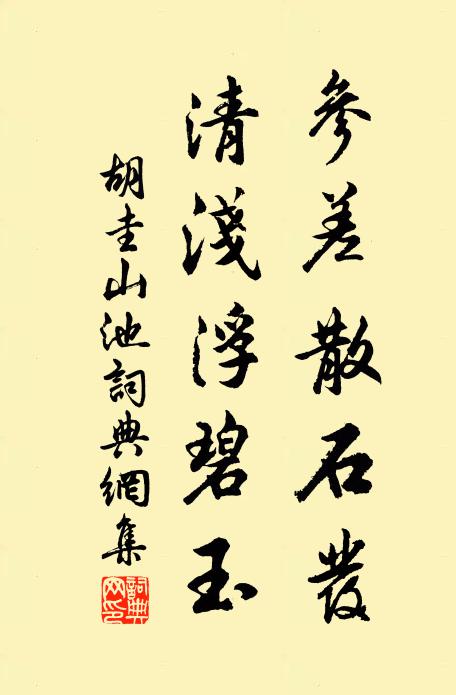 參差散石發
清淺浮碧玉
胡圭山池詞典網集
詞典網印